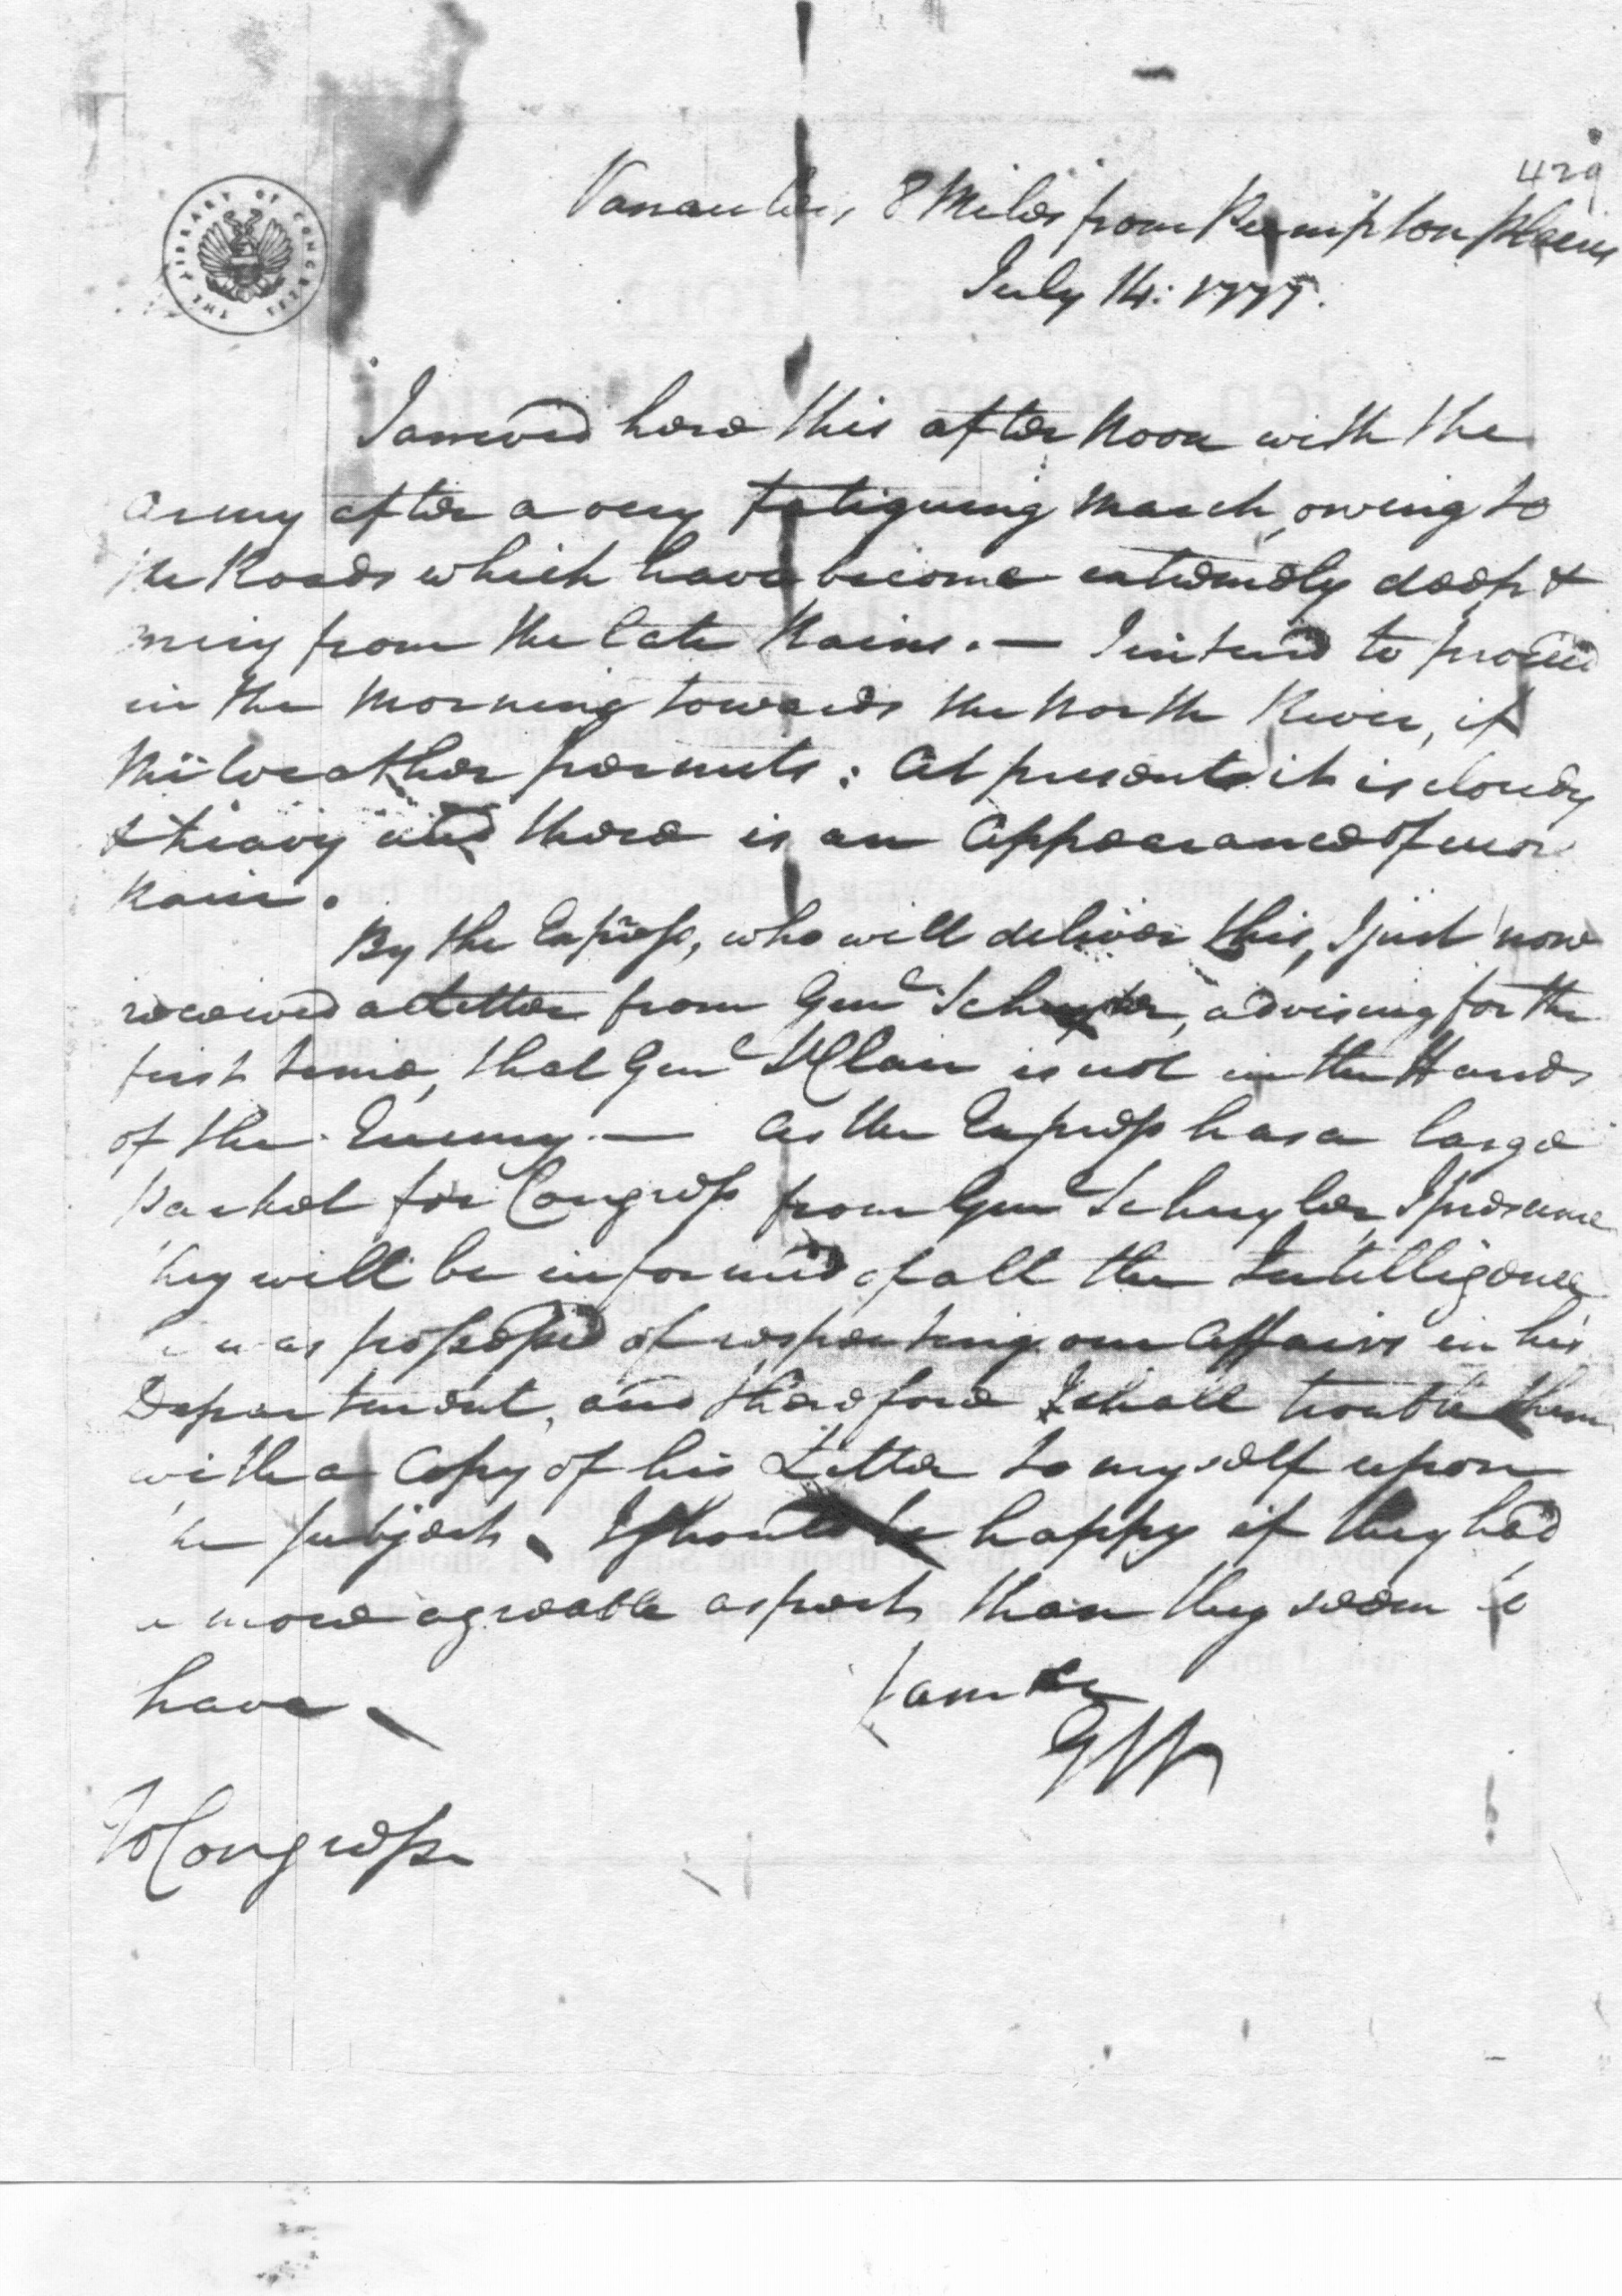 429
Vanaulens 8 Miles from Pumpton Plains
July 14: 1777.
THE LIBRARY OF CONGRESS
I arrived here this afternoon with the
Army after a very fatiguing March, owing to
the Roads which have become extremely deep &
miry from the late Rains. — I intend to proceed
in the Morning towards the North River, if
the weather permits: At present it is cloudy
& heavy and there is an Appearance of more
Rain.
By the Express, who will deliver this, I just now
received a Letter from Genl Schuyler, advising for the
first time, that Genl St Clair is not in the Hands
of the Enemy. — As the Express has a large
Packet for Congress from Genl Schuyler, I presume
they will be informed of all the Intelligence
he was possessed of respecting our Affairs in his
Department, and therefore I shall trouble them
with a Copy of his Letter to myself upon
the subject. I should be happy if they had
a more agreable aspect than they seem to
have.
I am &c
GW
To Congress